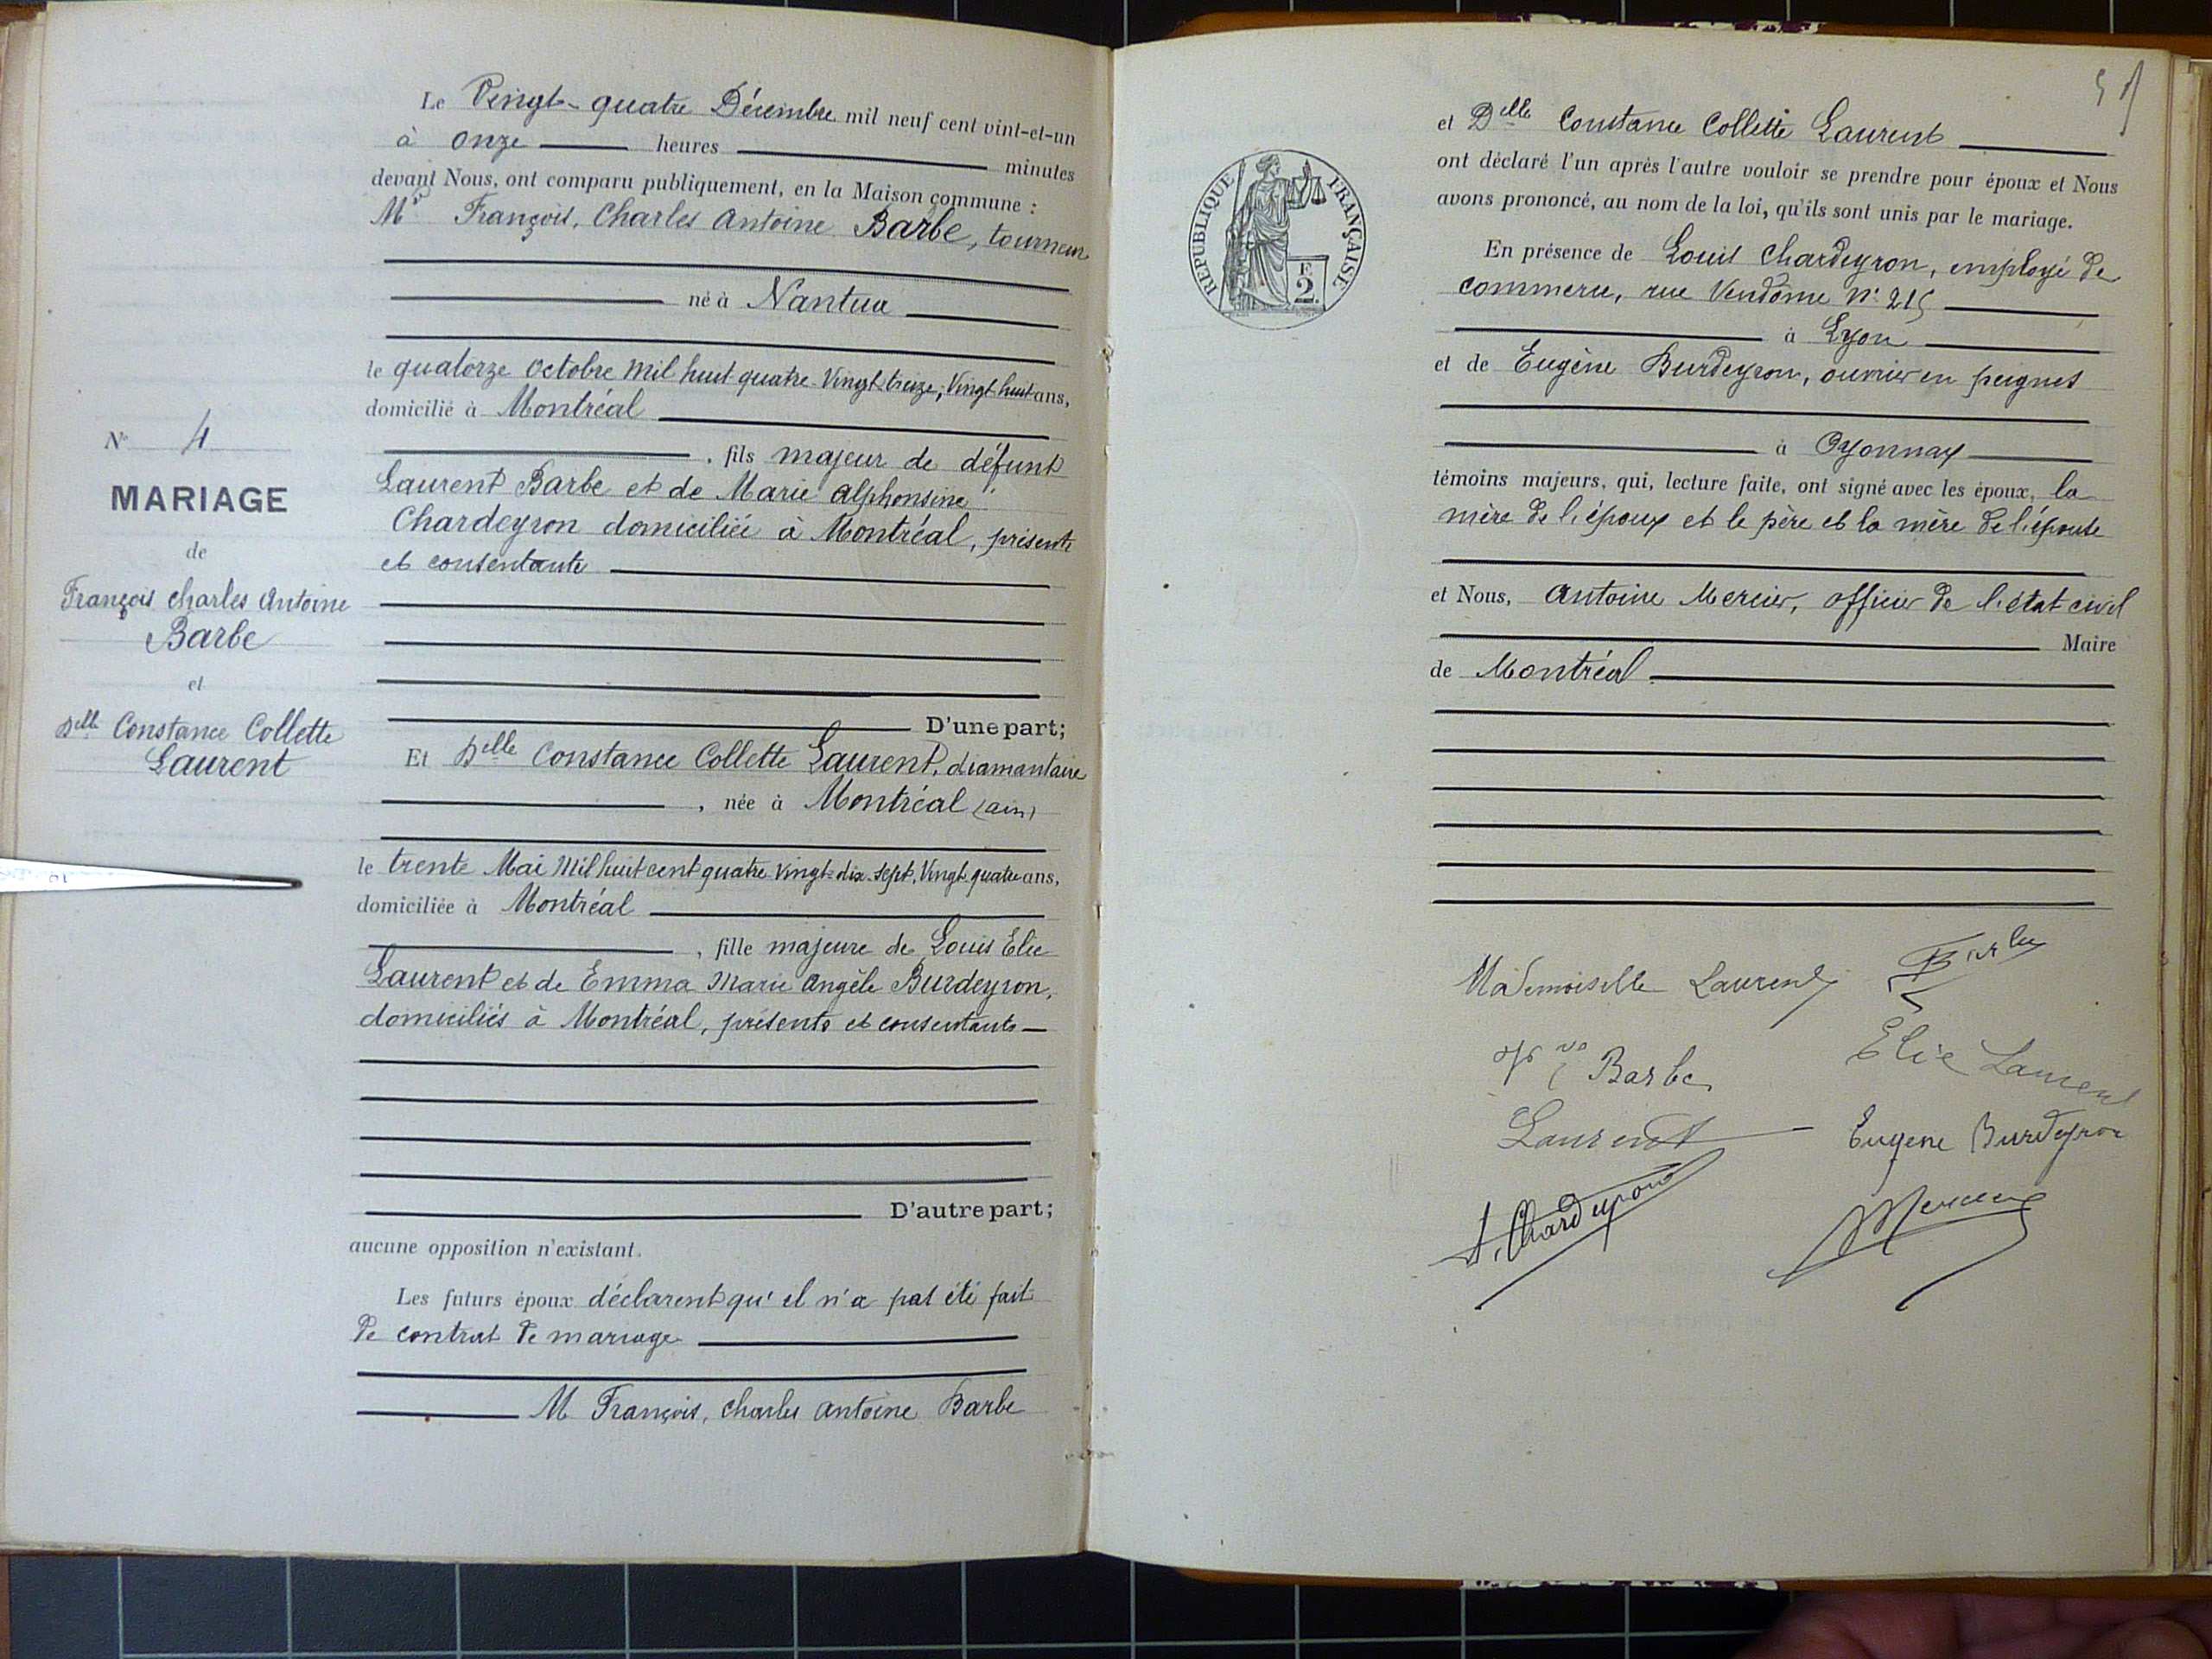 Le Vingt-quatre Décembre mil neuf cent vint-et-un
à onze heures minutes
devant Nous, ont comparu publiquement, en la Maison commune :
Mr François, Charles Antoine Barbe, tourneur
né à Nantua
le quatorze octobre mil huit quatre-Vingt-treize, Vingt-huit ans,
domicilié à Montréal
, fils majeur de défunt
Laurent Barbe et de Marie Alphonsine
Chardeyron domiciliée à Montréal, présente
et consentante
D'une part;
Et Delle Constance Collette Laurent, diamantaire
, née à Montréal (ain)
le trente Mai Mil huit cent quatre-Vingt-dix-sept, Vingt-quatre ans,
domiciliée à Montréal
, fille majeure de Louis Elie
Laurent et de Emma Marie Angèle Burdeyron,
domiciliés à Montréal, présents et consentants
D'autre part;
aucune opposition n'existant.
Les futurs époux déclarent qu'il n'a pas été fait
de contrat de mariage
M François, Charles Antoine Barbe
No 4
MARIAGE
de
François Charles Antoine
Barbe
et
Delle Constance Collette
Laurent
RÉPUBLIQUE FRANÇAISE
F.
2
et Delle Constance Collette Laurent
ont déclaré l'un après l'autre vouloir se prendre pour époux et Nous
avons prononcé, au nom de la loi, qu'ils sont unis par le mariage.
En présence de Louis Chardeyron, employé de
commerce, rue Vendôme No 215
à Lyon
et de Eugène Burdeyron, ouvrier en peignes
à Oyonnax
témoins majeurs, qui, lecture faite, ont signé avec les époux, la
mère de l'époux et le père et la mère de l'épouse
et Nous, Antoine Mercier, officier de l'état civil
Maire
de Montréal
Mademoiselle Laurent Barbe
Vve Barbe Elie Laurent
Laurent Eugene Burdeyron
L. Chardeyron Mercier